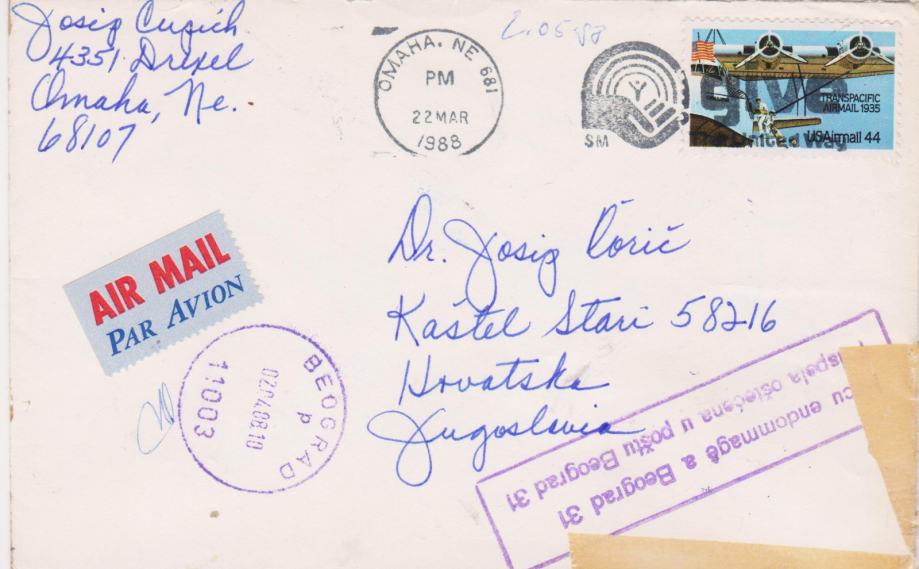 Josip Cupich
4351 Drexel
Omaha, Ne.
68107
OMAHA, NE 681
PM
22 MAR
1988
SM
give
United Way
TRANSPACIFIC
AIRMAIL 1935
USAirmail 44
AIR MAIL
PAR AVION
Dr. Josip Ćorić
Kaštel Stari 58216
Hrvatska
Jugoslavia
BEOGRAD
P
11003
cu endommagé a Beograd 31
spela oštećena u poštu Beograd 31